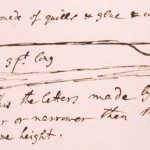 made of quills & glue &
3 ft. long
is the letters made by
or narrower than th
me height.